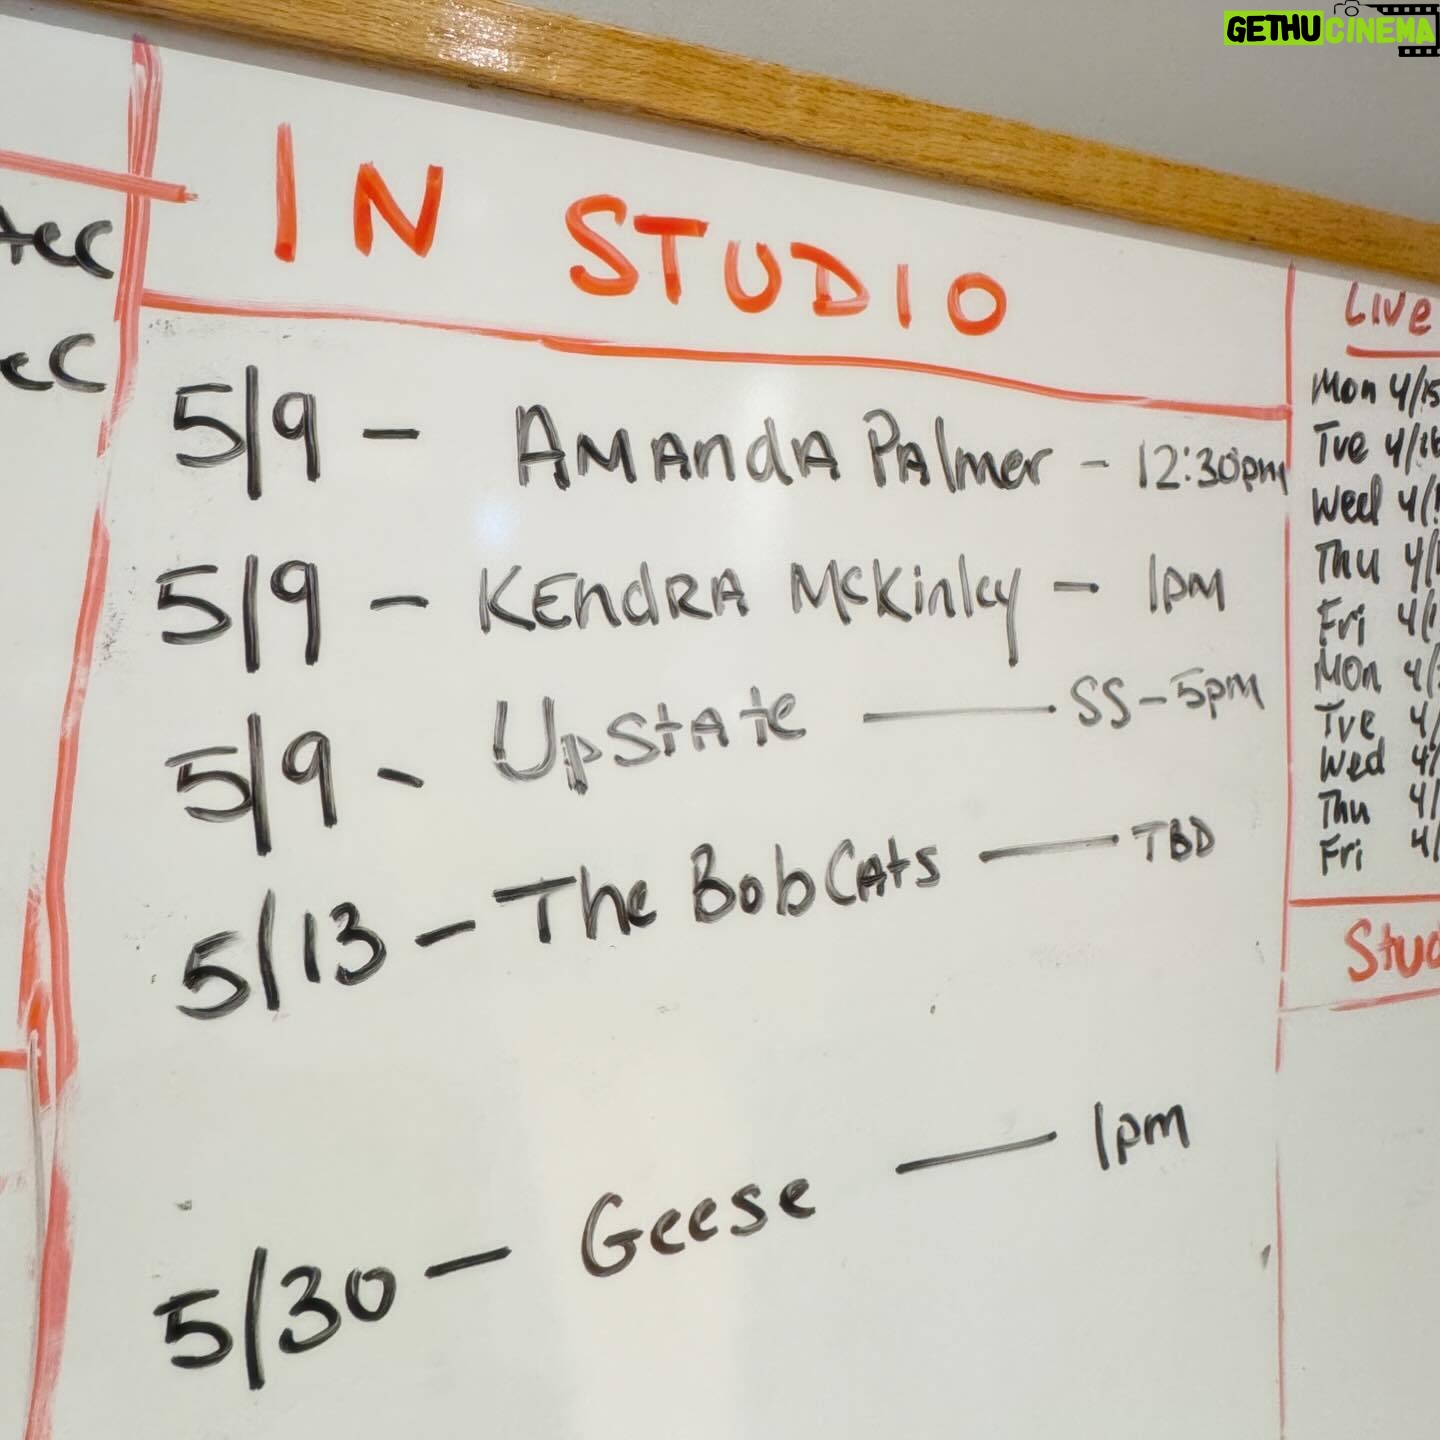 GETHUCINEMA
IN STUDIO
5/9 - AMANdA PALmer - 12:30pm
5/9 - KENdRA McKinley - 1pm
5/9 - UpStAte — SS-5pm
5/13 - The BobCAts — TBD
5/30 - Geese — 1pm
Live
Mon 4/15
Tue 4/16
Wed 4/
Thu 4/
Fri 4/
Mon 4/
Tue 4/
Wed 4/
Thu 4/
Fri 4/